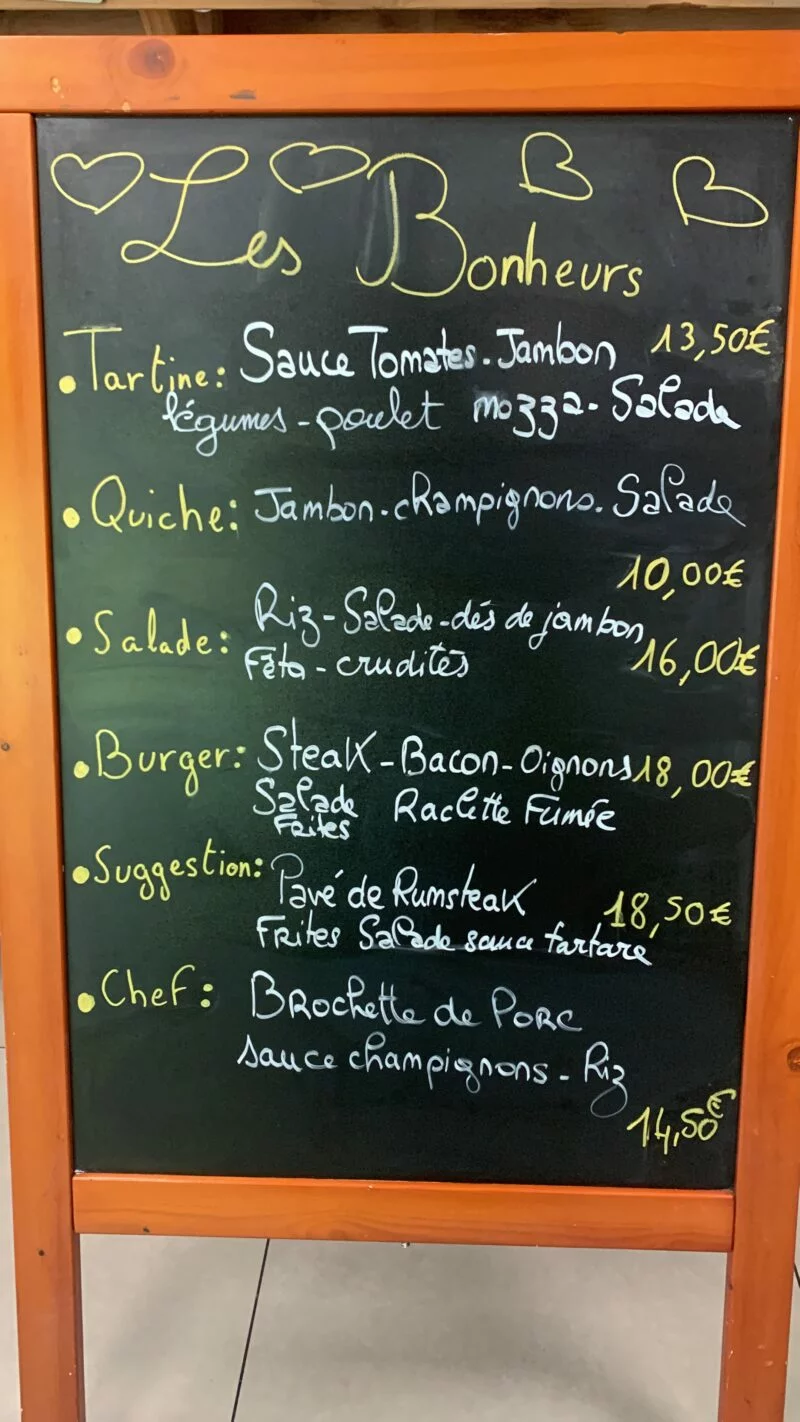 Les Bonheurs
• Tartine: Sauce Tomates - Jambon 13,50€
légumes - poulet mozza - Salade
• Quiche: Jambon - champignons - Salade
10,00€
• Salade: Riz - Salade - dés de jambon
Féta - crudités 16,00€
• Burger: Steak - Bacon - Oignons 18,00€
Salade Raclette Fumée
Frites
• Suggestion: Pavé de Rumsteak 18,50€
Frites Salade sauce tartare
• Chef: Brochette de Porc
sauce champignons - Riz
14,50€